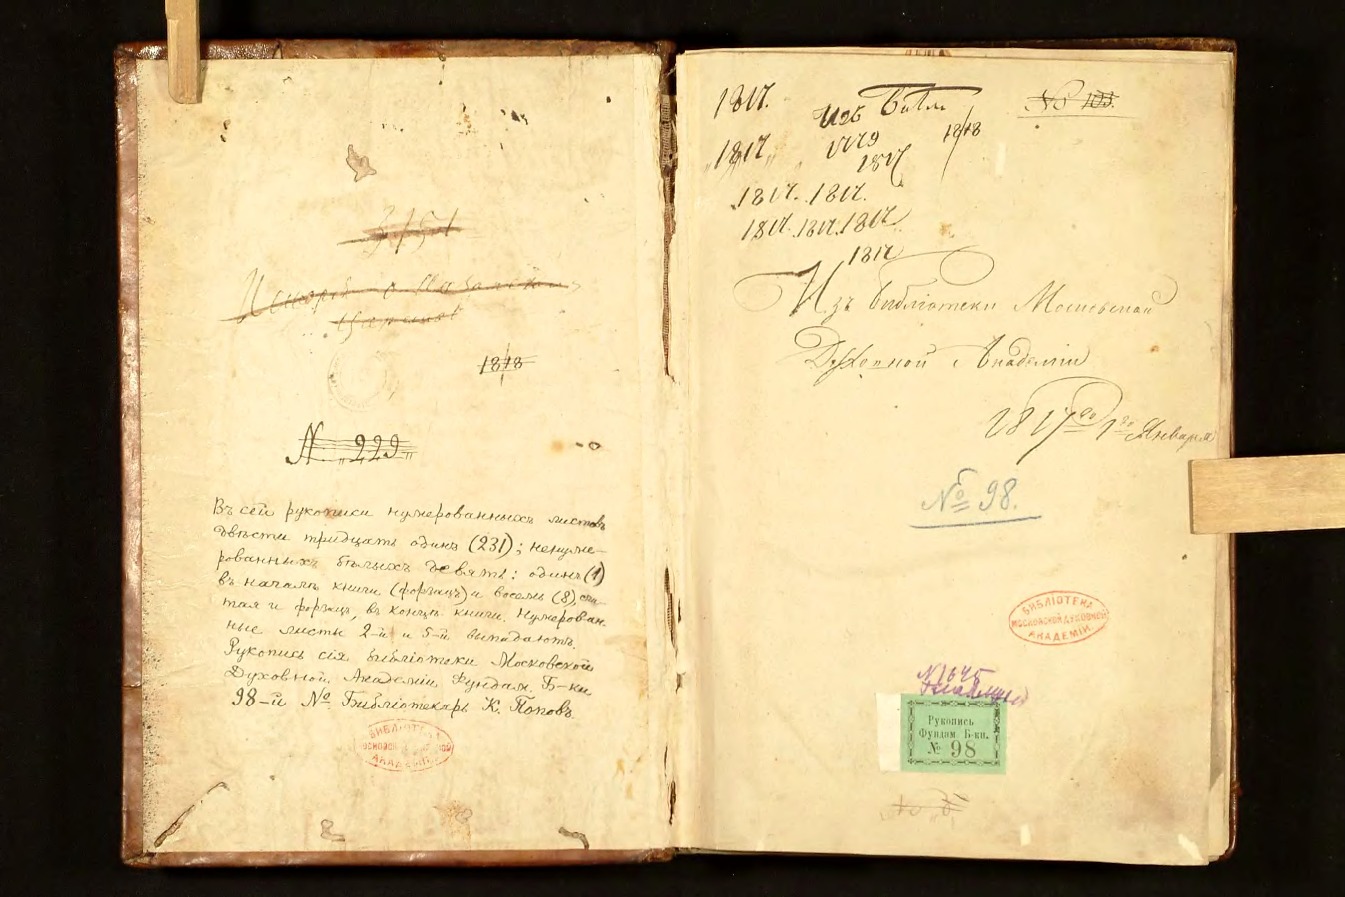 3151
Исторія о Казанскомъ
Царствѣ
1818
N. 229
Въ сей рукописи нумерованныхъ листовъ
двѣсти тридцать одинъ (231); ненуме-
рованныхъ бѣлыхъ девять: одинъ (1)
въ началѣ книги (форзацъ) и восемь (8), счи-
тая и форзацъ, въ концѣ книги. Нумерован-
ные листы 2-й и 5-й выпадаютъ.
Рукопись сія библіотеки Московской
Духовной Академіи Фундам. Б-ки
98-й №. Библіотекарь К. Поповъ.
БИБЛІОТЕКА
МОСКОВСКОЙ ДУХОВНОЙ
АКАДЕМІИ
1817. Изъ Библ № 103.
1818
"1817"
1817
1817. 1817.
1817. 1817. 1817
1817
Изъ библіотеки Московской
Духовной Академіи
1817го 1го Января
№ 98.
БИБЛІОТЕКА
МОСКОВСКОЙ ДУХОВНОЙ
АКАДЕМІИ
N 1645
Рукопись
Фундам. Б-ки.
№ 98